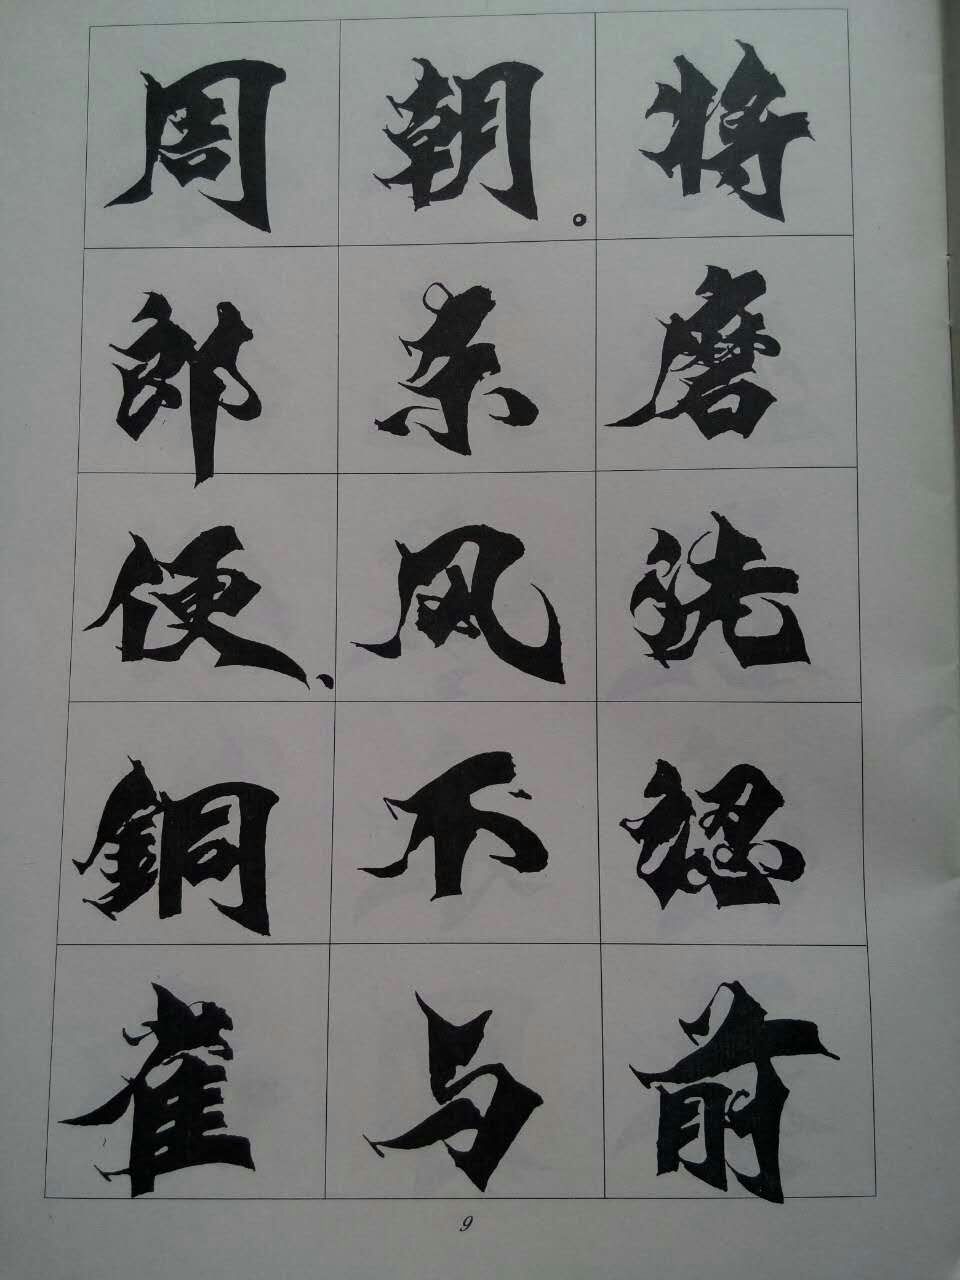 将磨洗認前
朝。东风不与
周郎便、銅雀
9